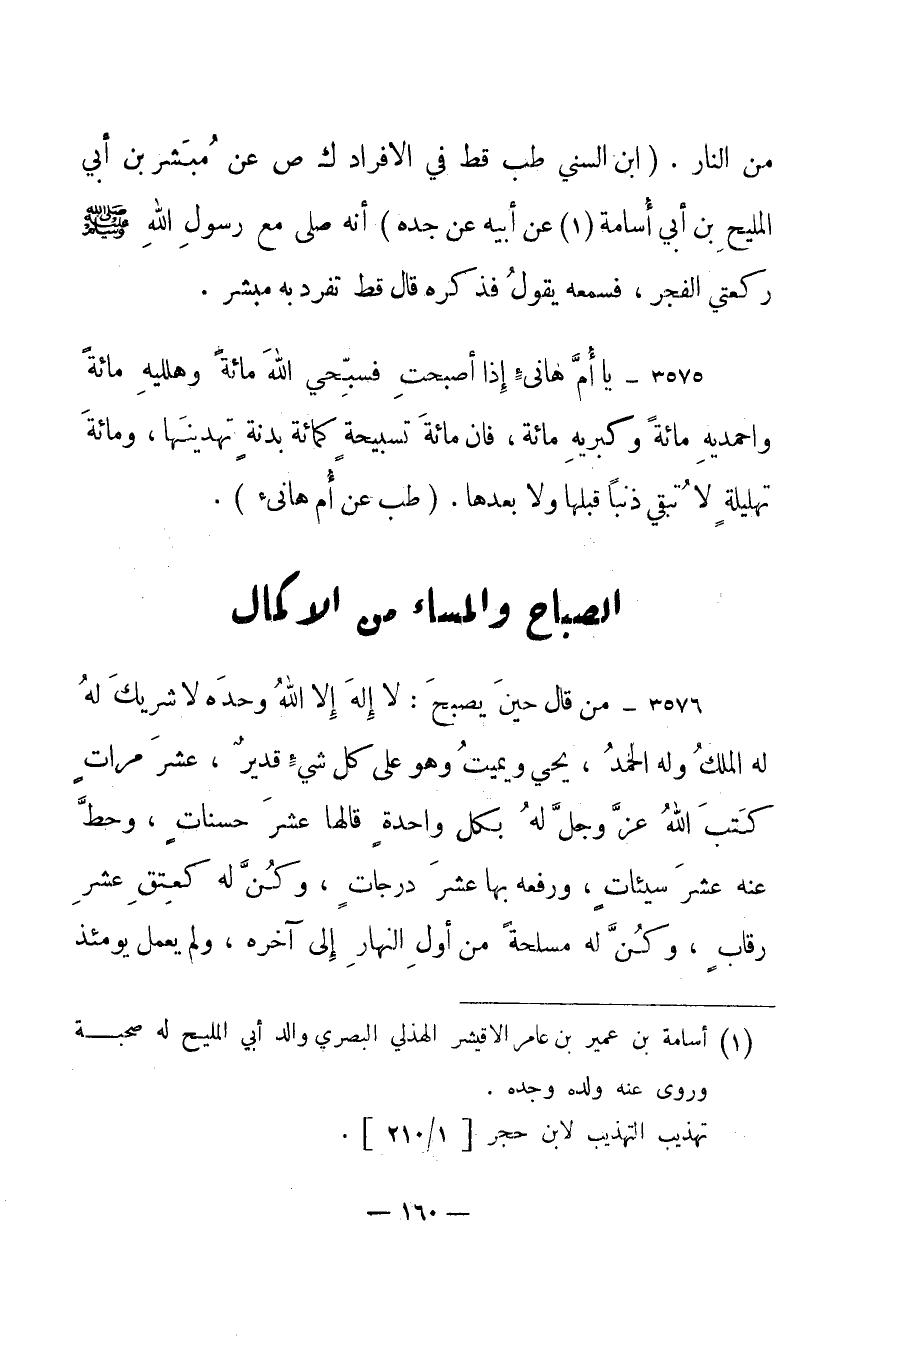 من النار . ( ابن السني طب قط في الافراد ك ص عن مُبَشر بن أبي
المليحِ بن أبي أُسامة (١) عن أبيه عن جده ) أنه صلى مع رسولِ اللهِ ﷺ
ركعتي الفجر ، فسمعه يقولُ فذكره قال قط تفرد به مبشر .
٣٥٧٥ ـ يا أُمَّ هانىءٍ إِذا أصبحتِ فسبِّحي اللهَ مائةً وهلليهِ مائةً
واحمديهِ مائةً وكبريهِ مائة ، فان مائةَ تسبيحةٍ كمائة بدنةٍ تهدينَها ، ومائةَ
تهليلةٍ لا تُبقي ذنباً قبلها ولا بعدها . ( طب عن أُم هانىء ) .
الصباح والمساء من الاكمال
٣٥٧٦ ـ من قال حينَ يصبحَ : لا إِلهَ إِلا اللهُ وحدَه لا شريكَ لهُ
له الملكُ وله الحمدُ ، يحيي ويميتُ وهو على كل شيءٍ قديرٌ ، عشرَ مراتٍ
كتَبَ اللهُ عزَّ وجلَّ لهُ بكل واحدةٍ قالها عشرَ حسناتٍ ، وحطَّ
عنه عشرَ سيئاتٍ ، ورفعه بها عشرَ درجاتٍ ، وكُنَّ له كعتقِ عشرِ
رقابٍ ، وكُنَّ له مسلحةً من أولِ النهارِ إِلى آخره ، ولم يعمل يومئذ
(١) أسامة بن عمير بن عامر الاقيشر الهذلي البصري والد أبي المليح له صحبـــة
وروى عنه ولده وجده .
تهذيب التهذيب لابن حجر [ ٢١٠/١ ] .
— ١٦٠ —